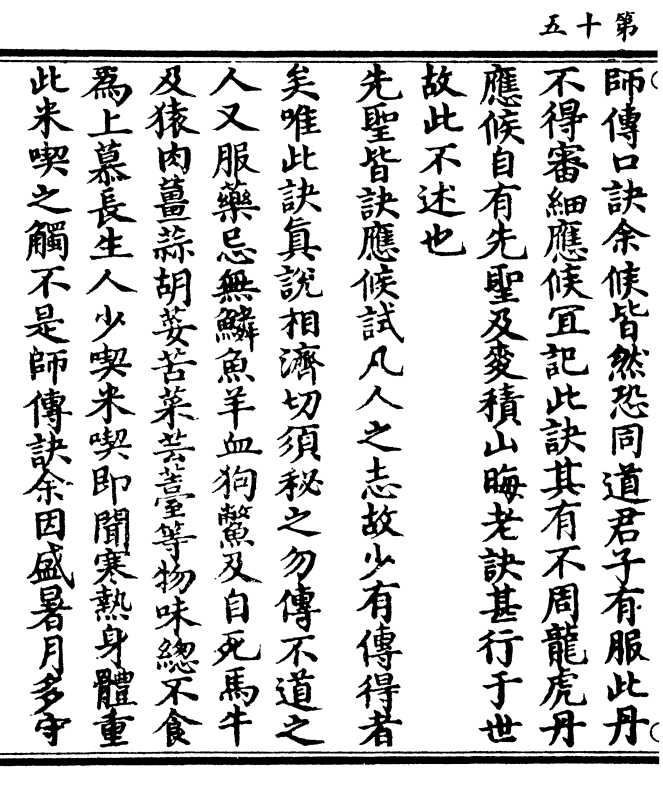 第十五
師傳口訣余候皆然恐同道君子有服此丹
不得審細應候冝記此訣其有不周龍虎丹
應候自有先聖及麥積山晦老訣甚行于世
故此不述也
先聖皆訣應候試凡人之志故少有傳得者
矣唯此訣真說相濟切須秘之勿傳不道之
人又服藥忌無鱗魚羊血狗鱉及自死馬牛
及猿肉薑蒜胡荽苦菜芸薹等物味總不食
為上慕長生人少喫米喫即聞寒熱身體重
此米喫之觸不是師傳訣余因盛暑月多守